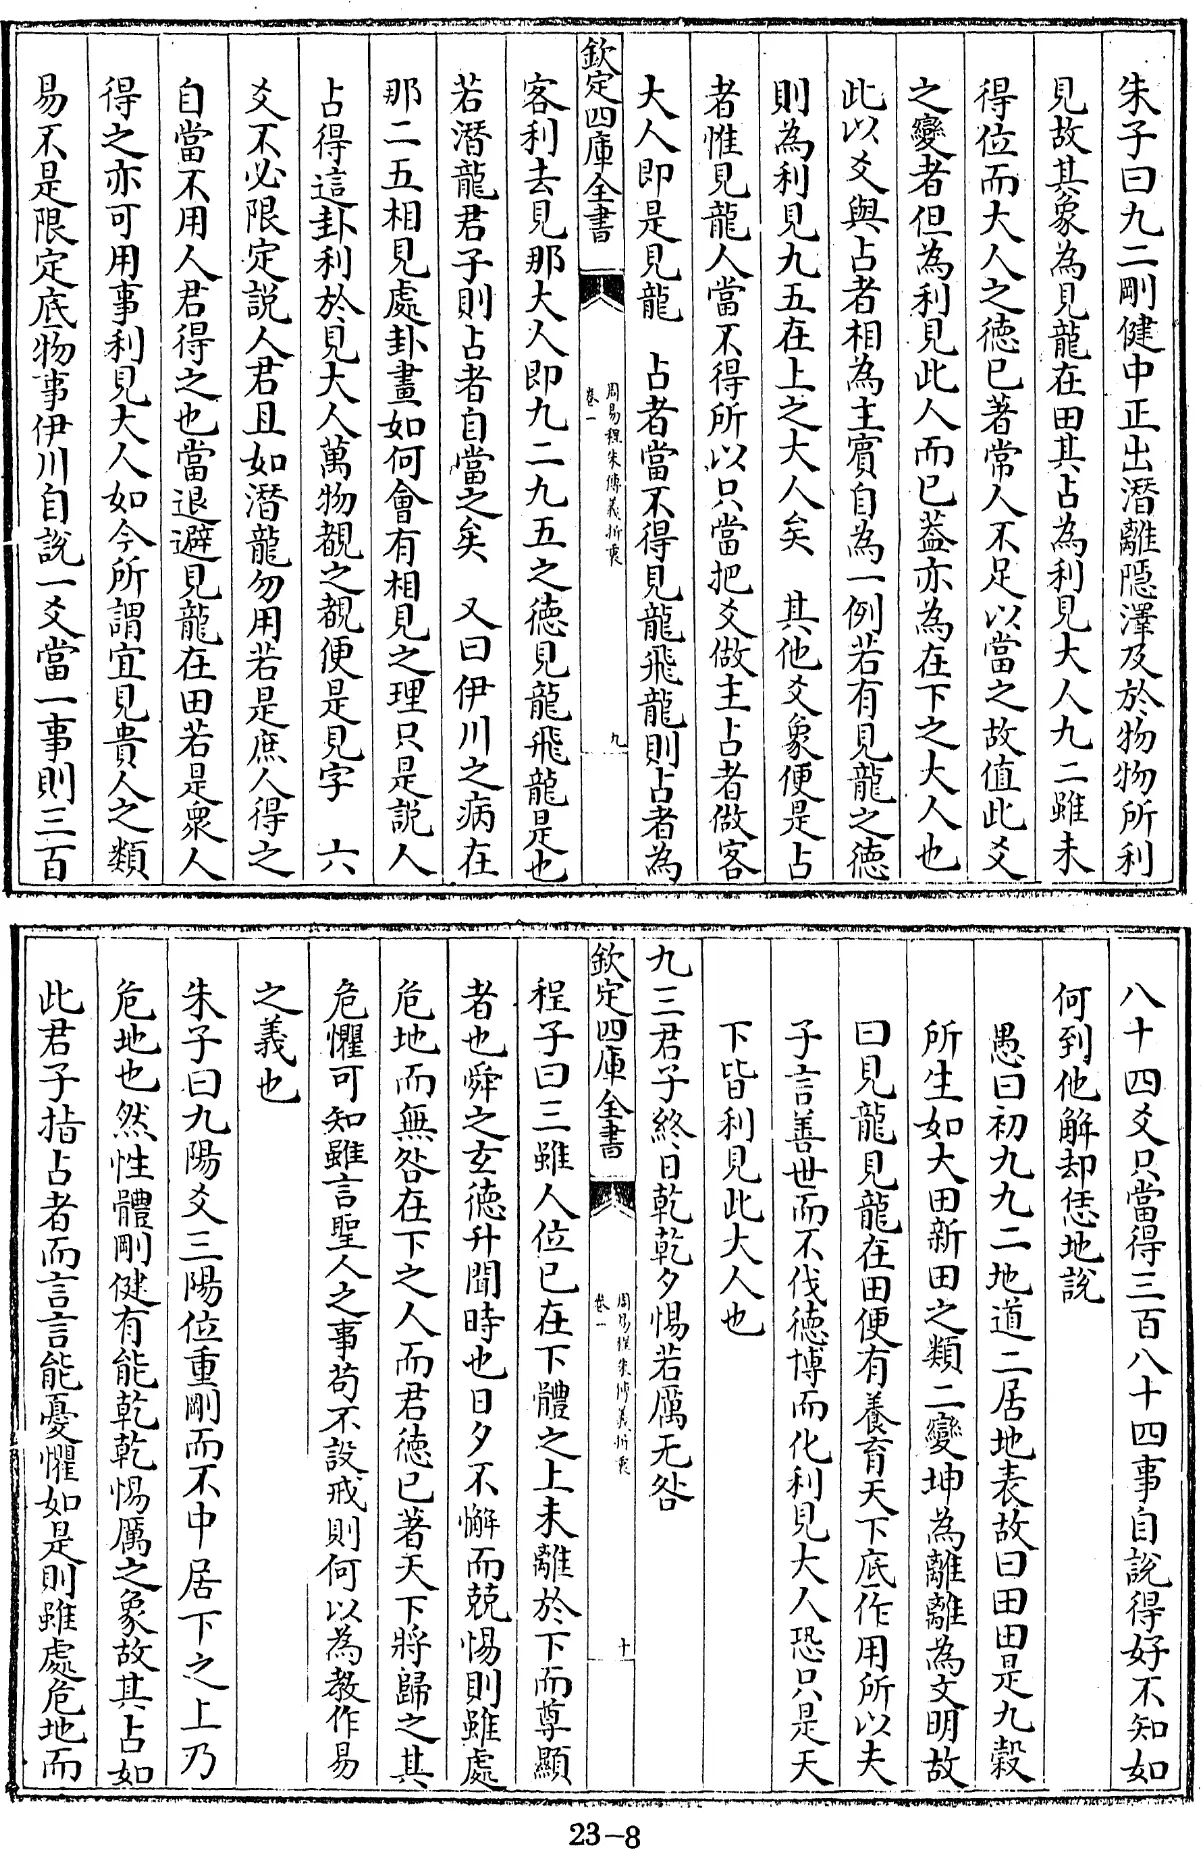 朱子曰九二剛健中正出潛離隱澤及於物物所利
見故其象為見龍在田其占為利見大人九二雖未
得位而大人之德已著常人不足以當之故值此爻
之變者但為利見此人而已葢亦為在下之大人也
此以爻與占者相為主賓自為一例若有見龍之德
則為利見九五在上之大人矣　其他爻象便是占
者惟見龍人當不得所以只當把爻做主占者做客
大人即是見龍　占者當不得見龍飛龍則占者為
欽定四庫全書
周易程朱傳義折衷
卷一
九
客利去見那大人即九二九五之德見龍飛龍是也
若潛龍君子則占者自當之矣　又曰伊川之病在
那二五相見處卦畫如何會有相見之理只是説人
占得這卦利於見大人萬物覩之覩便是見字　六
爻不必限定説人君且如潛龍勿用若是庶人得之
自當不用人君得之也當退避見龍在田若是衆人
得之亦可用事利見大人如今所謂宜見貴人之類
易不是限定底物事伊川自說一爻當一事則三百
八十四爻只當得三百八十四事自說得好不知如
何到他解却恁地說
愚曰初九九二地道二居地表故曰田田是九穀
所生如大田新田之類二變坤為離離為文明故
曰見龍見龍在田便有養育天下底作用所以夫
子言善世而不伐德博而化利見大人恐只是天
下皆利見此大人也
九三君子終日乾乾夕惕若厲无咎
欽定四庫全書
周易程朱傳義折衷
卷一
十
程子曰三雖人位已在下體之上未離於下而尊顯
者也舜之玄德升聞時也日夕不懈而兢惕則雖處
危地而無咎在下之人而君德已著天下將歸之其
危懼可知雖言聖人之事苟不設戒則何以為教作易
之義也
朱子曰九陽爻三陽位重剛而不中居下之上乃
危地也然性體剛健有能乾乾惕厲之象故其占如
此君子指占者而言言能憂懼如是則雖處危地而
23-8